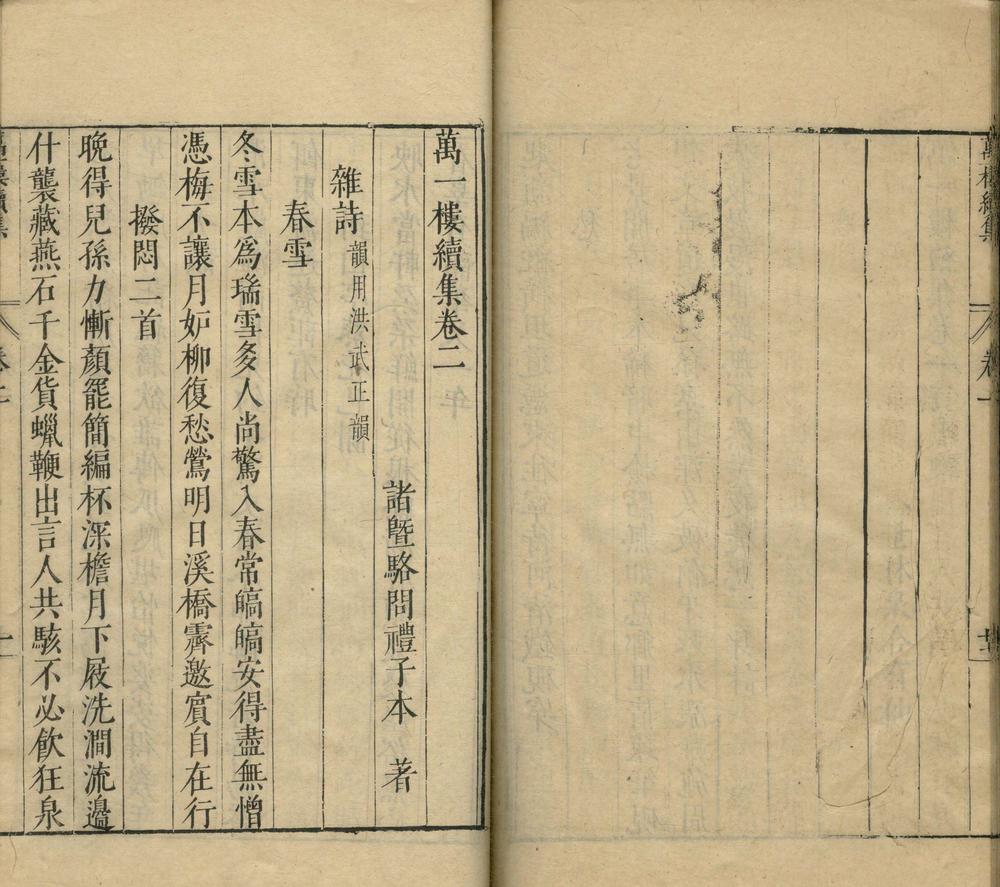 萬一樓續集
卷一
廿
萬一樓續集卷二
諸暨駱問禮子本 著
雜詩 韻用洪武正韻
春雪
冬雪本爲瑞雪多人尚驚入春常皜皜安得盡無憎
憑梅不讓月妒柳復愁鶯明日溪橋霽邀賓自在行
撥悶二首
晚得兒孫力慚顏罷簡編杯深檐月下屐洗澗流邊
什襲藏燕石千金貨蠟鞭出言人共駭不必飲狂泉
卷二
一